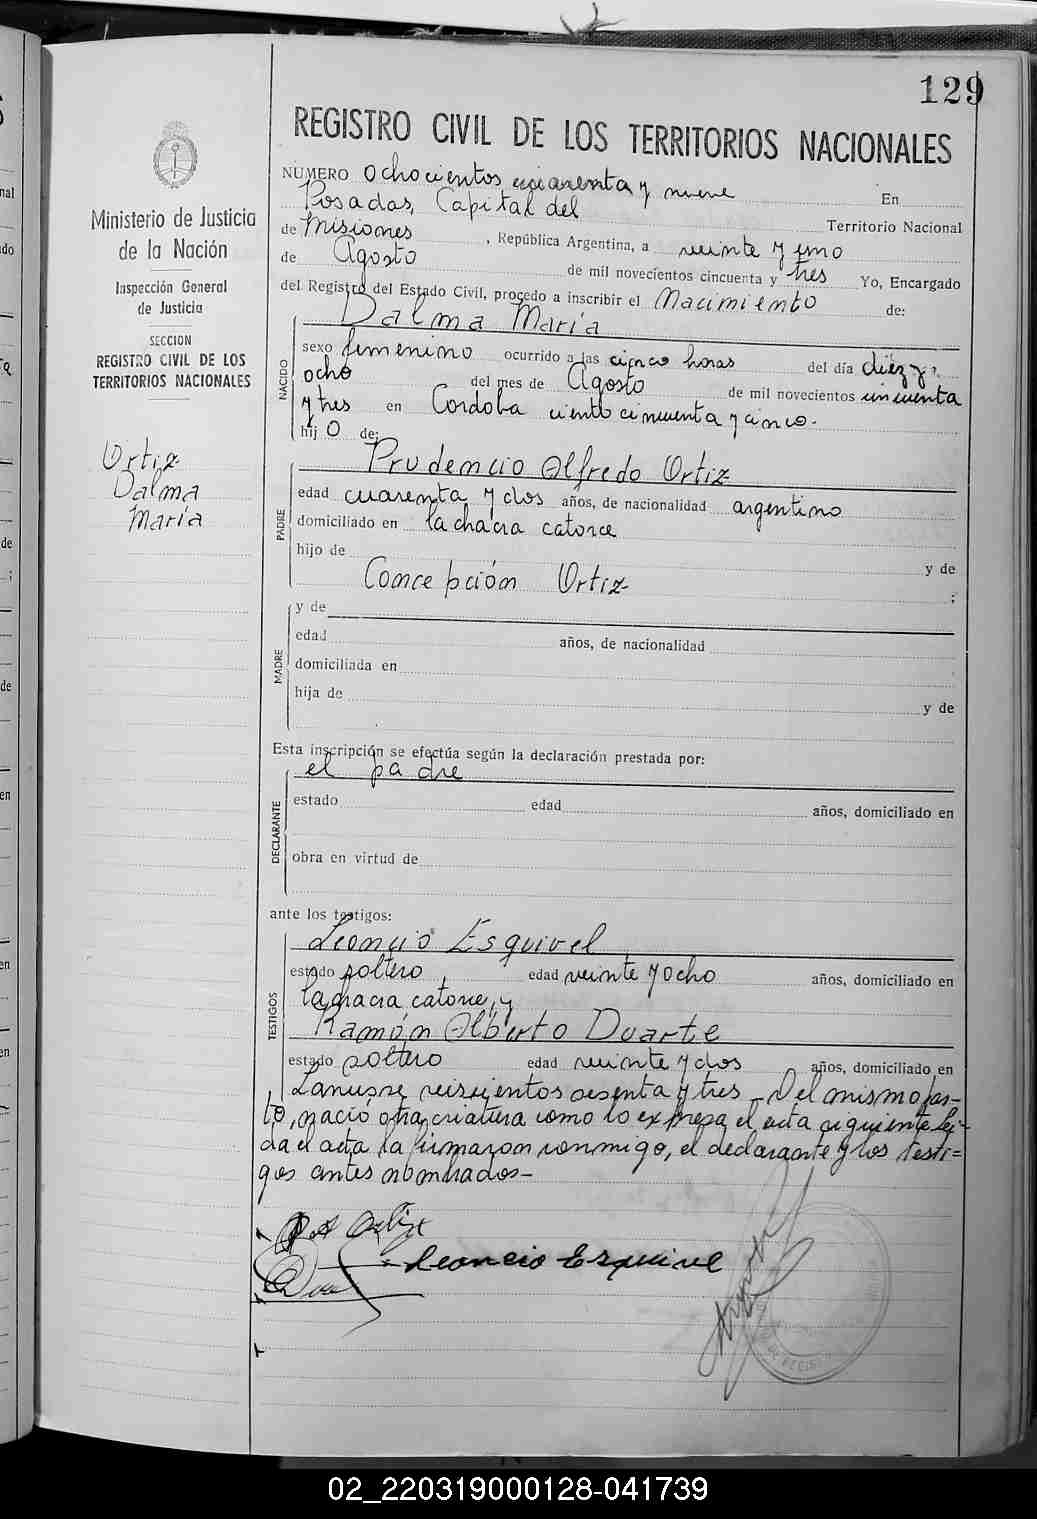 129
REGISTRO CIVIL DE LOS TERRITORIOS NACIONALES
Ministerio de Justicia
de la Nación
Inspección General
de Justicia
SECCION
REGISTRO CIVIL DE LOS
TERRITORIOS NACIONALES
Ortiz
Dalma
María
NÚMERO Ochocientos cuarenta y nueve En
Posadas, Capital del Territorio Nacional
de Misiones, República Argentina, a veinte y uno
de Agosto de mil novecientos cincuenta y tres Yo, Encargado
del Registro del Estado Civil, procedo a inscribir el Nacimiento de:
Dalma María
NACIDO
sexo femenino ocurrido a las cinco horas del día diez y
ocho del mes de Agosto de mil novecientos cincuenta
y tres en Cordoba ciento cincuenta y cinco.
hij o de:
Prudencio Alfredo Ortiz
PADRE
edad cuarenta y dos años, de nacionalidad argentino
domiciliado en la chacra catorce
hijo de y de
Concepción Ortiz ;
MADRE
y de
edad años, de nacionalidad
domiciliada en
hija de y de
Esta inscripción se efectúa según la declaración prestada por:
el padre
DECLARANTE
estado edad años, domiciliado en
obra en virtud de
ante los testigos:
Leoncio Esquivel
TESTIGOS
estado soltero, edad veinte y ocho años, domiciliado en
la chacra catorce, y
Ramón Alberto Duarte
estado soltero edad veinte y dos años, domiciliado en
Lanusse seiscientos sesenta y tres - Del mismo par-
to, nació otra criatura como lo expresa el acta siguiente Lei-
da el acta la firmaron conmigo, el declarante y los testi=
gos antes nombrados-
P A Ortiz
Leoncio Esquivel
02_220319000128-041739